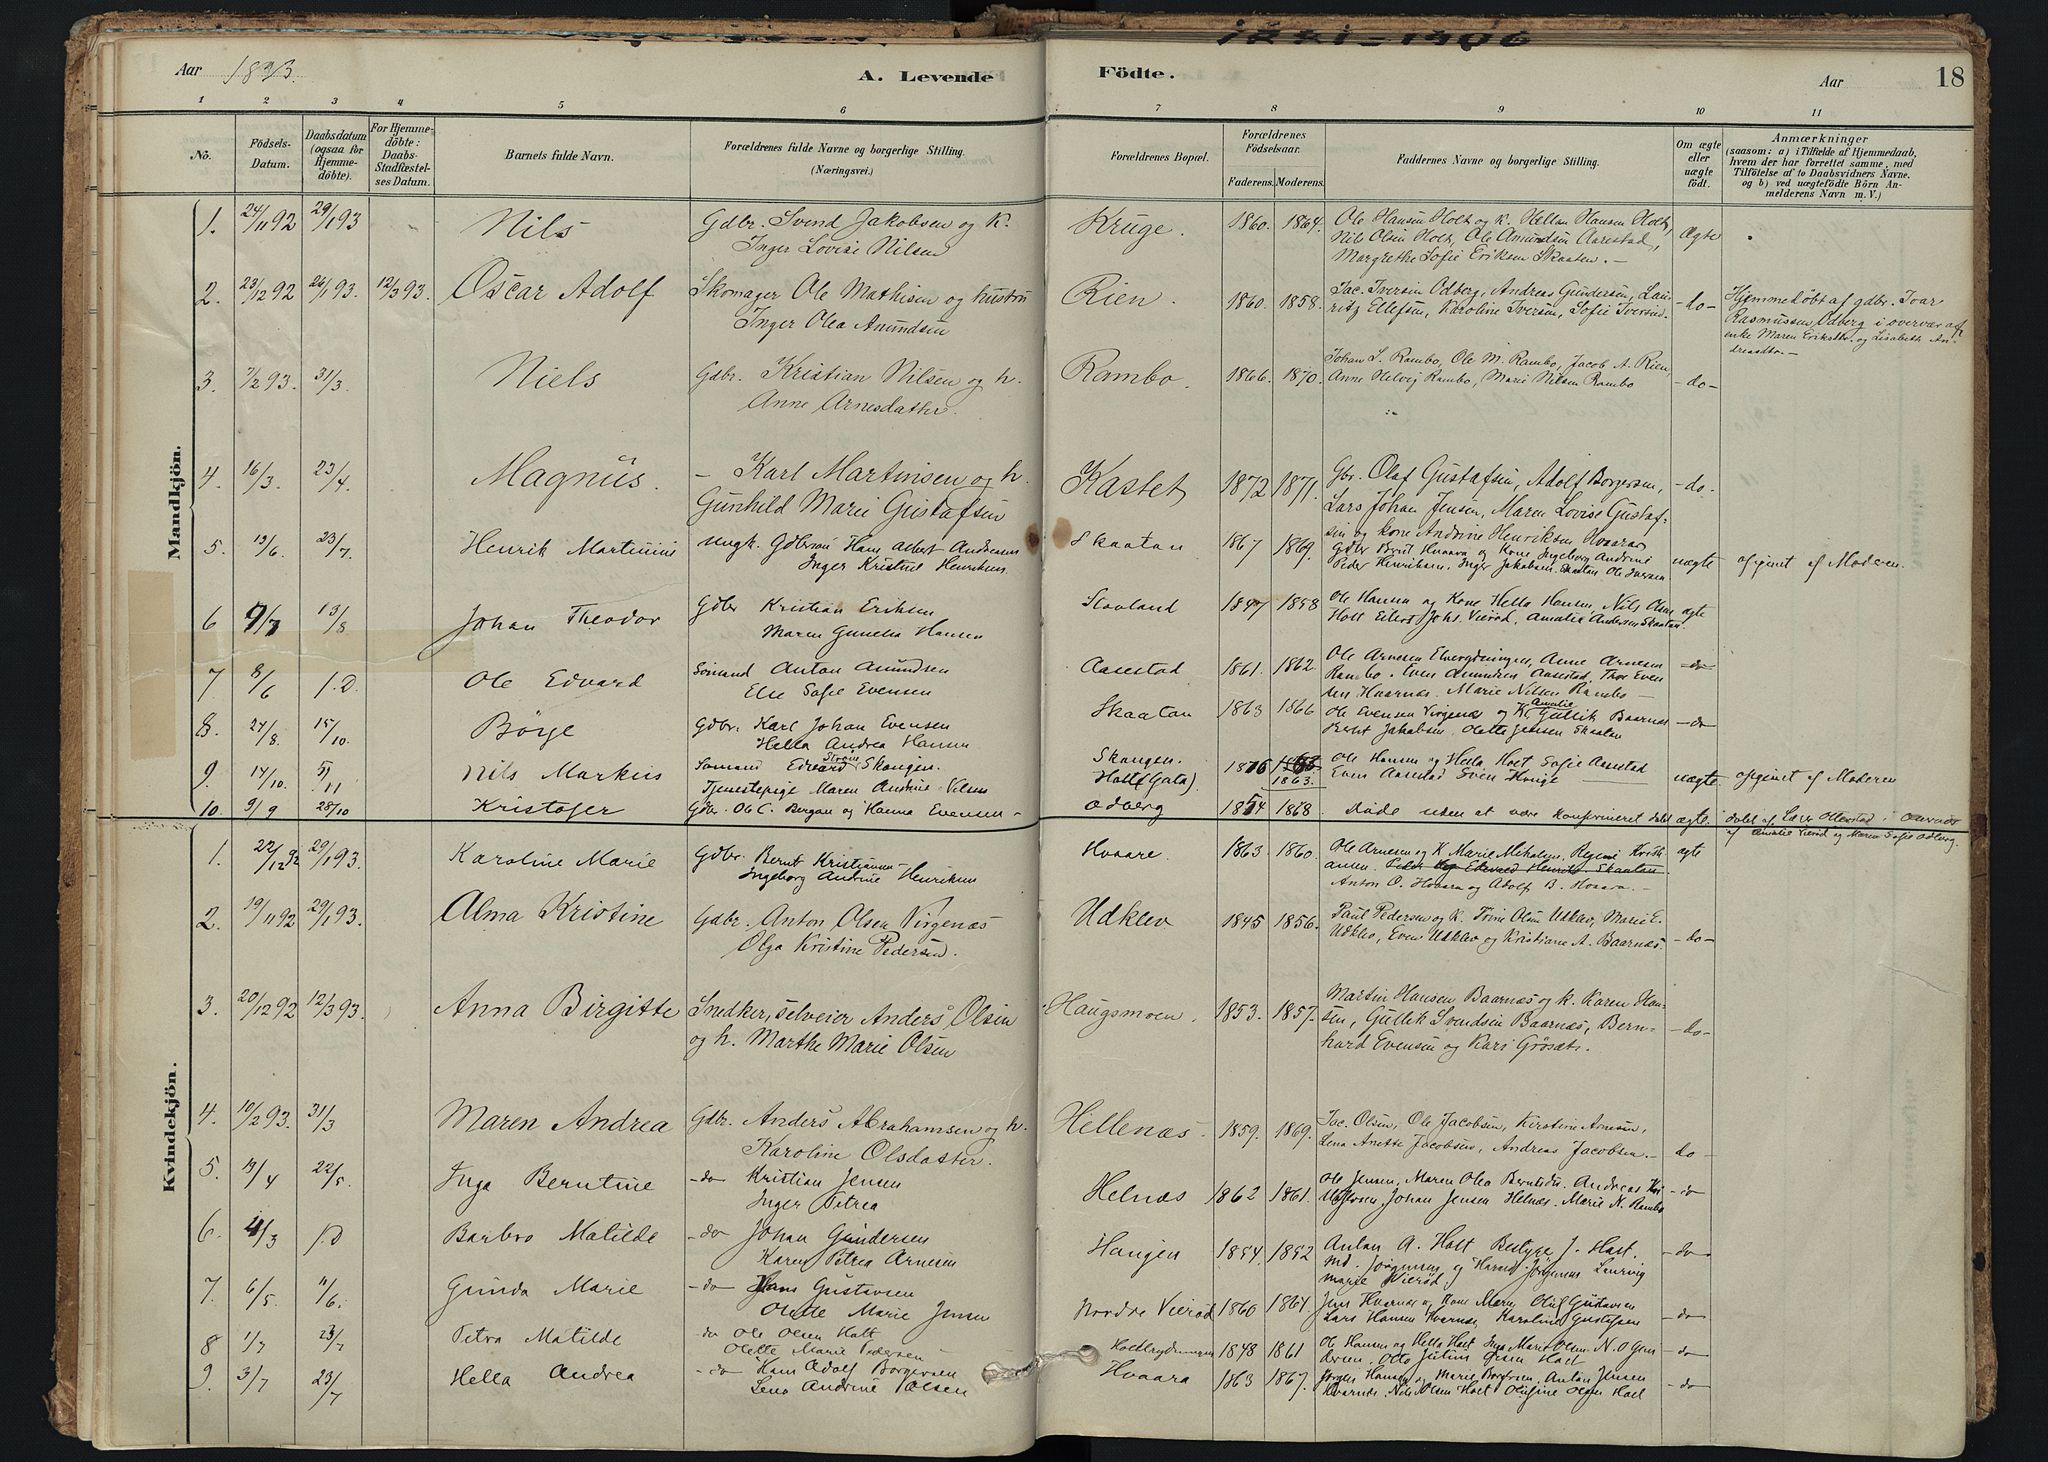 1881-1906
Aar 1893.
A. Levende
Födte.
Aar
18
1 2 3 4 5 6 7 8 9 10 11
No.
Födsels-Datum.
Daabsdatum (ogsaa for Hjemme-döbte).
For Hjemme-döbte: Daabs-Stadfæstel-ses Datum.
Barnets fulde Navn.
Forældrenes fulde Navne og borgerlige Stilling.
(Næringsvei.)
Forældrenes Bopæl.
Forældrenes Födselsaar.
Faderens. Moderens.
Faddernes Navne og borgerlige Stilling.
Om ægte eller uægte födt.
Anmærkninger
(saasom: a) i Tilfælde af Hjemmedaab,
hvem der har forrettet samme, med
Tilföielse af to Daabsvidners Navne.
og b) ved uægtefödte Börn An-
melderens Navn m. V.)
Mandkjön.
1. 24/11 92 29/1 93 Nils Gdbr. Svend Jakobsen og K. Kruge. 1860. 1864. Ole Hansen Holt og K. Hellan Hansen Holt, Ægte
Inger Lovise Nilsen Nils Olsen Holt, Ole Amundsen Aarestad,
Margrethe Sofie Eriksen Skaaten. –
2. 23/12 92 26/1 93. 12/3 93. Oscar Adolf Skomager Ole Mathisen og hustru Rien. 1860. 1858. Jac. Iversen Odberg, Andreas Gundersen, Lau- -do- Hjemmedøbt af gdbr. Ivar
Inger Olea Anundsen ritz Ellefsen, Karoline Iversen, Sofie Iversen. Rasmussen Odberg i overvær af
enke Maren Eriksdtr. og Lisabeth An-
dreasdtr. –
3. 7/2 93. 31/3. Niels Gdbr. Kristian Nilsen og h. Rambo. 1866. 1870. Johan L. Rambo, Ole M. Rambo, Jacob A. Rien, -do-
Anne Arnesdatter. Anne Helvig Rambo, Marie Nilsen Rambo
4. 16/3. 23/4. Magnus. – Karl Martinsen og h. Kastet 1872 1871. Gbr. Olaf Gustafsen, Adolf Borgersen, -do-
Gunhild Marie Gustafsen Lars Johan Jensen, Maren Lovise Gustaf-
sen og kone Andrine Henriksen Hvaara
5. 13/6. 23/7. Henrik Martinius ungk. Gdbrsøn Hans Albert Andreasen Skaatan 1867 1869. Gdbr Bernt Hvaara og Kone Ingeborg Andrine uægte afginet af Moderen.
Inger Kristine Henriksen. Peder Henriksen. Inger Jakobsen Skaatan Ole Iversen
6 9/7 13/8 Johan Theodor Gdbr Kristian Eriksen Stovland 1847 1858 Ole Hansen og Kone Hella Hansen, Nils Olsen ægte
Maren Gunelia Hansen Holt Eilert Johs. Vierød, Amalie Andersen Skaatan.
7 8/6 s.D. Ole Edvard Sømand Anton Amundsen Aasestad 1861. 1862. Ole Arnesen Anne Arnesen -do
Else Sofie Evensen Rambo. Even Amundsen Aasestad, Thor Even
sen Hvarnæs. Marie Nilsen Rambo
8. 24/8. 15/10. Børge Gdbr. Karl Johan Evensen Skaatan 1863 1866 Ole Evensen Virgenæs og K. Amalie Gullik Baarnæs -do
Hella Andrea Hansen Bernt Jakobsen Olette Jensen Skaatan
9. 14/10. 5/11 Nils Markus Sømand Edvard Skangen. Skangen. 1866 Ole Hansen og Hella, Holt Sofie Aasestad uægte. opginet af Moderen
Tjenestepige Maren Andrine Nilsen Holt (Gata). 1863. Even Aasestad Sven Hauge
10. 9/9 28/10 Kristofer Gdbr. Ole C. Bergan og Hanna Evensen – Odberg 1854 1868 Døde uden at være konfirmeret døbt ægte. døbt af Lars Ollestad i Overvær
af Amalie Vierød og Maren Sofie Odberg.
Kvindekjön.
1. 22/12 92 29/1 93. Karoline Marie Gdbr. Bernt Kristiansen Hvaare. 1863. 1860. Ole Arnesen og K Marie Mikalsen, Regine Kristi- ægte
Ingeborg Andrine Henriksen ansen.
Anton O. Hvaara og Adolf B. Hvaara. –
2. 19/11 92 29/1 93. Alma Kristine Gdbr. Anton Olsen Virgenæs Udklev 1845 1856. Paul Pedersen og K. Trine Olsen Udklev, Marie E. -do-
Olga Kristine Pedersen. Udklev, Even Udklev og Kristiane A. Baarnæs.
3. 20/12 92 12/3 93. Anna Birgitte Snedker, selveier Anders Olsen Haugsmoen. 1853. 1857. Martin Hansen Baarnæs og K. Karen Han- -do-
og h. Marthe Marie Olsen sen, Gullik Svendsen Baarnæs, Bern-
hard Evensen og Kari Grøsæt.
4. 10/2 93. 31/3 Maren Andrea Gdbr. Anders Abrahamsen og h. Hellenæs. 1859. 1869. Jac. Olsen, Ole Jacobsen, Kirstine Arnesen,
Karoline Olsdatter. Lena Anette Jacobsen, Andreas Jacobsen. – do –
5. 13/4 22/5. Inga Berntine -do Kristian Jensen Helnæs 1862 1861. Ole Jensen, Maren Olea Berntsen. Andreas -do
Inger Petrea Johan Jensen Helnæs. Marie N. Rambo
6. 4/3 s.D Barbro Matilde -do Johan Gundersen Haugen 1854 1852 Anton A. Holt Bestyge J. Holt. -do
Karen Petrea Arnesen Md. Jørgensen og Jørgensen Laurvig
marie Vierød.
7. 6/5. 11/6. Gunda Marie -do Hans Gustavsen Nordre Vierød 1860 1864. Jens Hvarnæs og Kone Maren Oluf Gustavsen -do
Olette Marie Jensen Lars Hansen Hvarnæs, Karoline Gustafsen
8 1/7 23/7 Petra Matilde -do Ole Olsen Holt 1848 1861 Ole Hansen og Hella Holt Inga Marie Olsen N. O Gun -do
Olette Marie Pedersen dersen. Otto Julius Olsen Holt
9. 3/7 23/7 Hella Andrea -do Hans Adolf Borgersen Hvaara 1863 1867. Jørgen Hansen og Marie Borgersen, Anton Jensen -do
Lena Andrine Olsen Hvarnæs. Nils Olsen Holt Olufine Olsen Holt